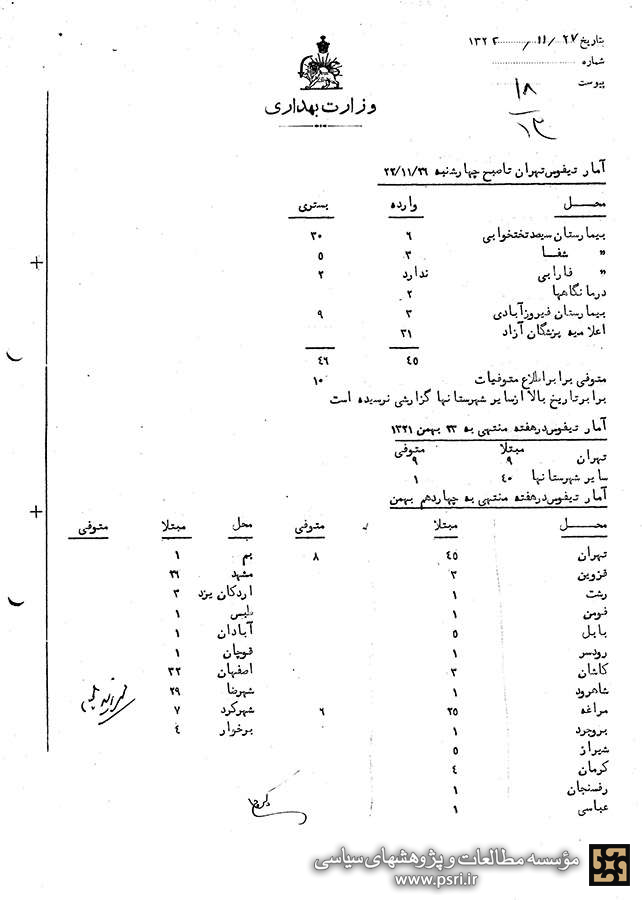 بتاریخ ۲۷/ ۱۱/ ۱۳۲۲
شماره
پیوست
۱۸
۱۲
وزارت بهداری
آمار تیفوس تهران تا صبح چهارشنبه ۲۲/۱۱/۲۶
محل وارده بستری
بیمارستان سیصد تختخوابی ۶ ۳۰
" شفا ۳ ۵
" فارابی ندارد ۲
درمانگاهها ۲
بیمارستان فیروزآبادی ۳ ۹
اعلامیه پزشگان آزاد ۳۱
۴۵ ۴۶
متوفی برابر اطلاع متوفیات ۱۰
برابر تاریخ بالا از سایر شهرستانها گزارشی نرسیده است
آمار تیفوس در هفته منتهی به ۲۳ بهمن ۱۳۲۱
مبتلا متوفی
تهران ۹ ۹
سایر شهرستانها ۴۰ ۱
آمار تیفوس در هفته منتهی به چهاردهم بهمن
محل مبتلا متوفی محل مبتلا متوفی
تهران ۴۵ ۸ بم ۱
قزوین ۳ مشهد ۳۶
رشت ۱ اردکان یزد ۳
فومن ۱ ۱
بابل ۵ آبادان ۱
رودسر ۱ قوچان ۱
کاشان ۳ اصفهان ۳۲
شاهرود ۱ شهرضا ۲۹
مراغه ۲۵ ۶ شهرکرد ۷
بروجرد ۱ برخوار ۴
شیراز ۵
کرمان ۴
رفسنجان ۱
عباسی ۱
مؤسسه مطالعات و پژوهشهای سیاسی
www.psri.ir